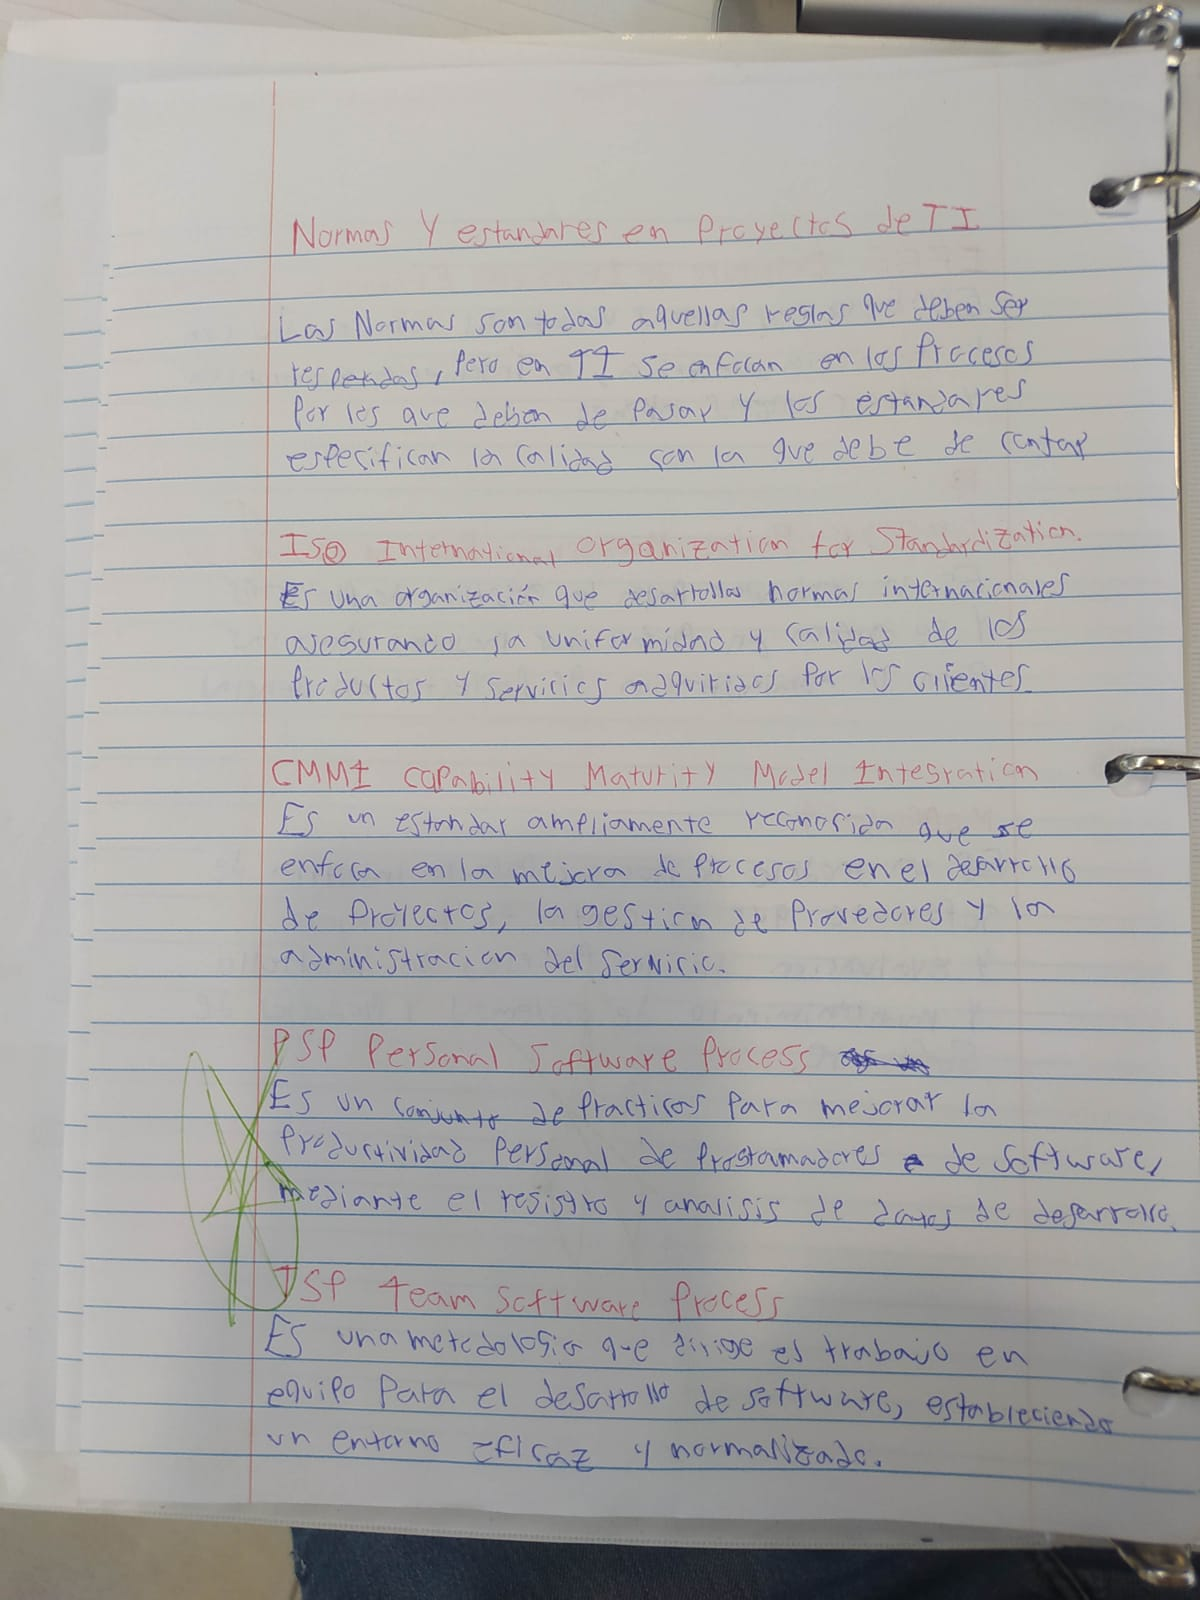 Normas Y estandares en Proyectos de TI
Las Normas son todas aquellas reglas que deben ser
respetadas, pero en TI se enfocan en los Procesos
Por los que deben de Pasar Y los estandares
especifican la calidad con la que debe de contar
ISO International organization for Standardization.
Es una organización que desarrollas normas internacionales
asegurando la uniformidad y calidad de los
Productos Y servicios adquiridos Por los clientes
CMMI Capability Maturity Model Integration
Es un estandar ampliamente reconocida que se
enfoca en la mejora de Procesos en el desarrollo
de Proyectos, la gestion de Provedores y la
administracion del servicio.
PSP Personal Software Process
Es un conjunto de Practicas Para mejorar la
Productividad Personal de Programadores de software,
mediante el registro y analisis de datos de desarrollo.
TSP team Software Process
Es una metodologia que dirige es trabajo en
equipo Para el desarrollo de software, estableciendo
un entorno eficaz y normalizado.